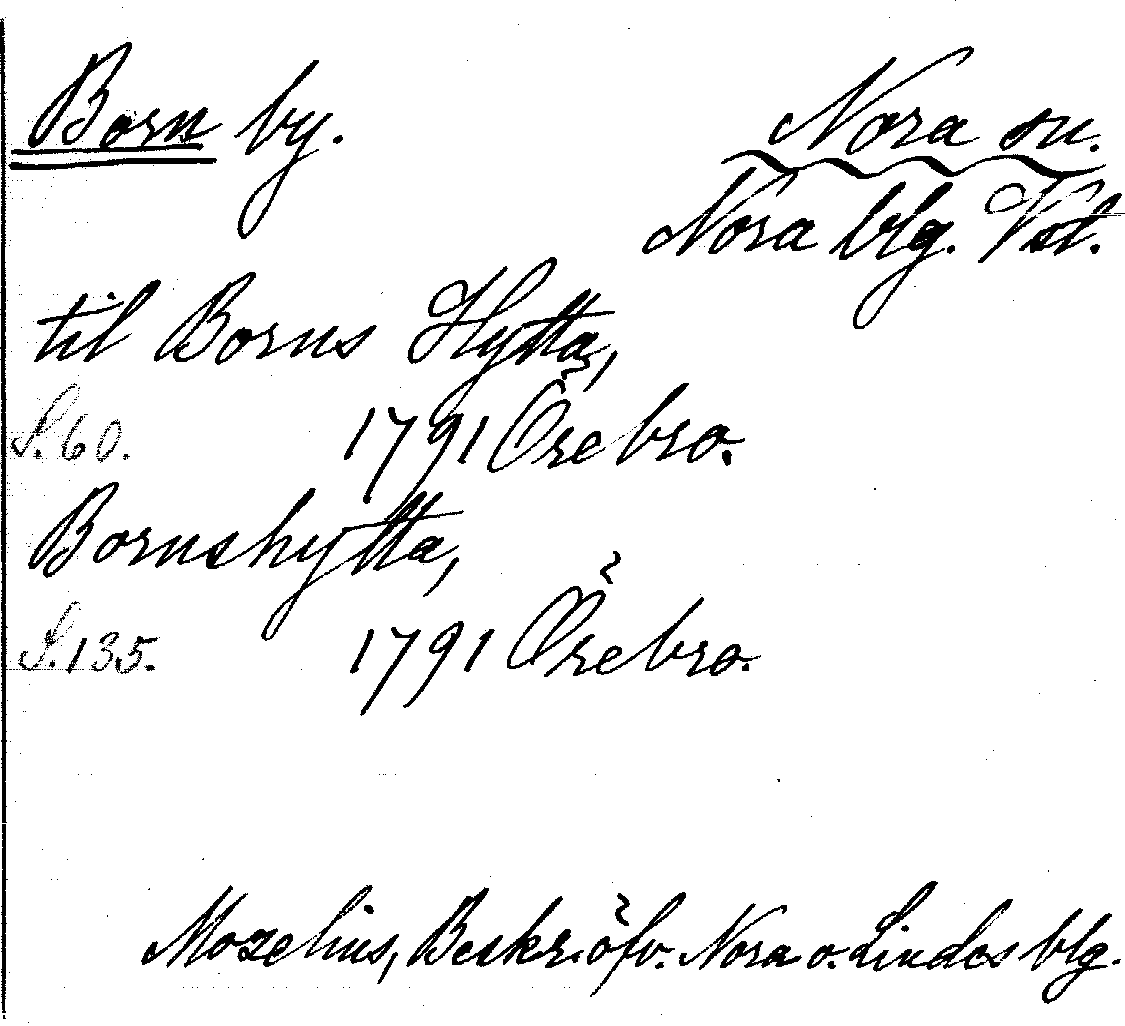 Born by. Nora sn.
Nora blg. Vstl.
til Borns Hytta,
S. 60. 1791 Örebro.
Bornshytta,
S. 135. 1791 Örebro.
Mozelius, Beskr. öfv. Nora o. Lindes blg.